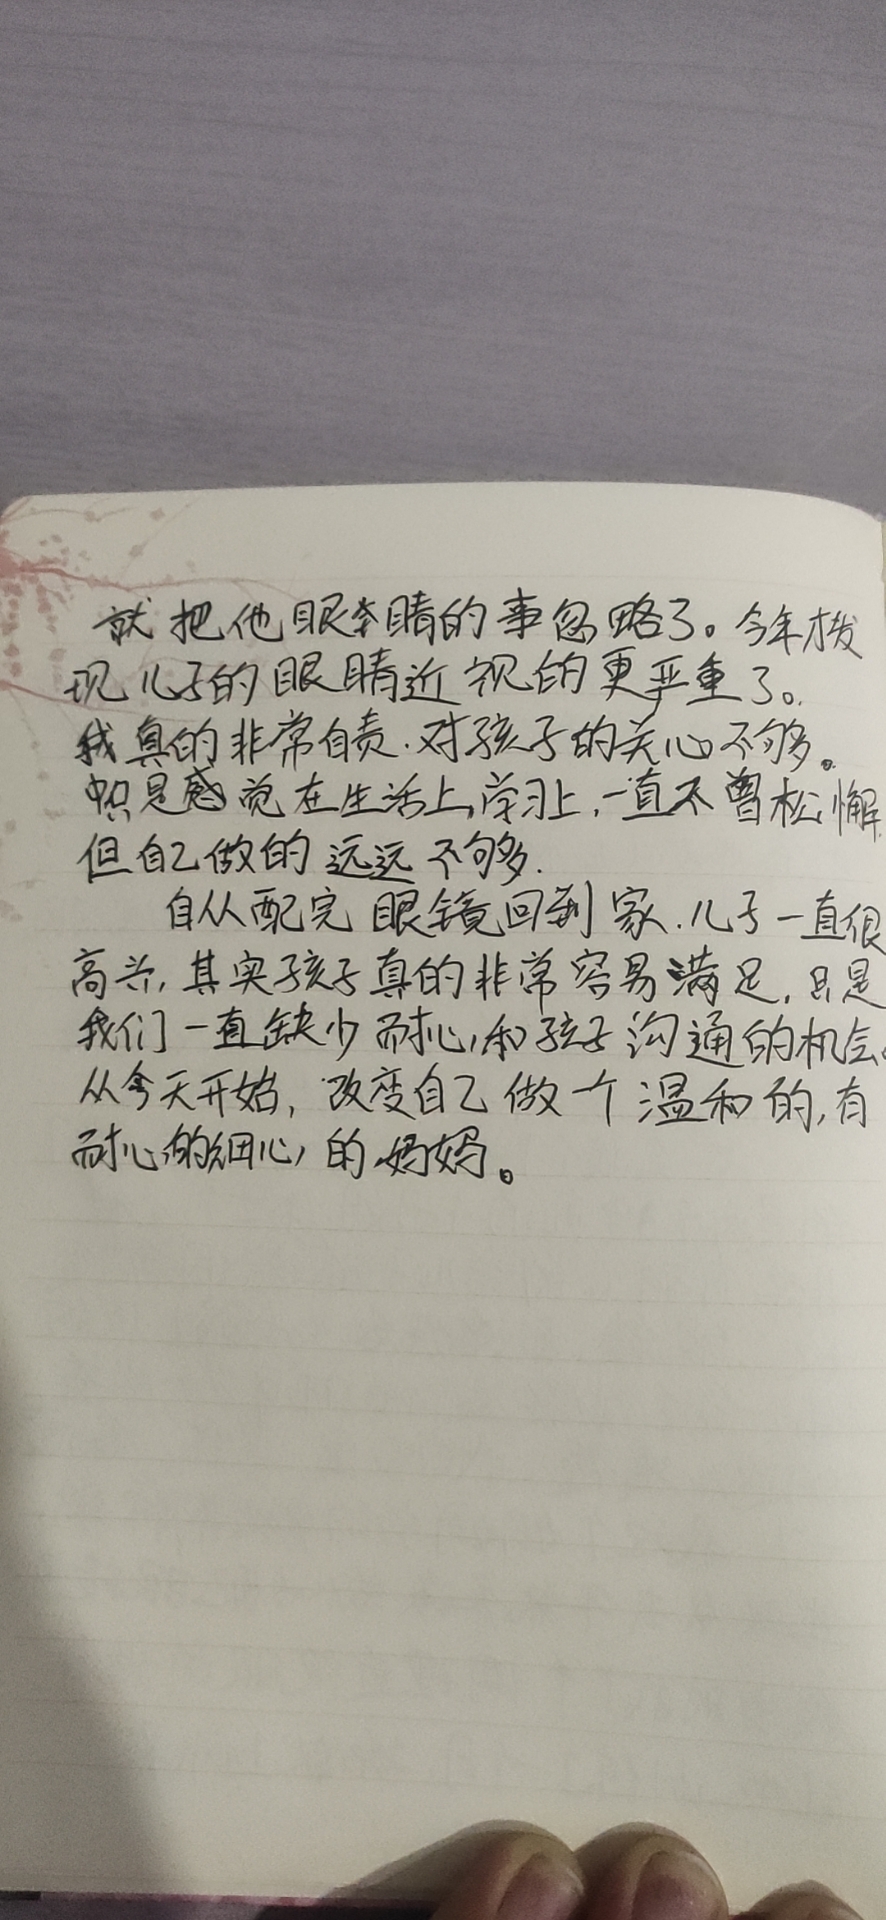 就把他眼睛的事忽略了。今年才发
现儿子的眼睛近视的更严重了。
我真的非常自责.对孩子的关心不够。
是感觉在生活上,学习上,一直不曾松懈
但自己做的远远不够.
自从配完眼镜回到家.儿子一直很
高兴,其实孩子真的非常容易满足,只是
我们一直缺少耐心,和孩子沟通的机会。
从今天开始,改变自己做一个温和的,有
耐心的细心的妈妈。